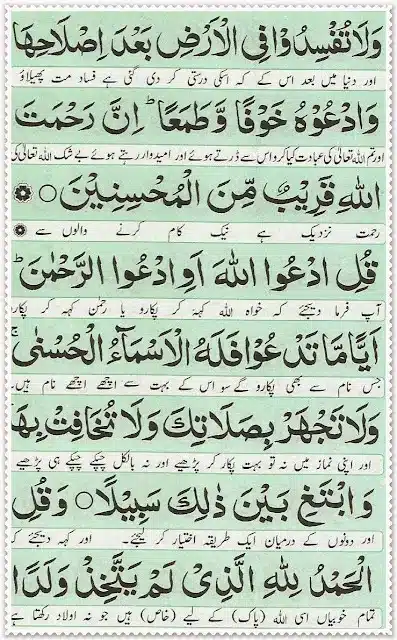 وَلَا تُفْسِدُوْا فِی الْاَرْضِ بَعْدَ اِصْلَاحِهَا
اور دنیا میں بعد اس کے کہ اسکی درستی کر دی گئی ہے فساد مت پھیلاؤ
وَادْعُوْهُ خَوْفًا وَّطَمَعًا ؕ اِنَّ رَحْمَتَ
اور تم اللہ تعالیٰ کی عبادت کیا کرو اس سے ڈرتے ہوئے اور امیدوار رہتے ہوئے بے شک اللہ تعالیٰ کی
اللهِ قَرِيْبٌ مِّنَ الْمُحْسِنِيْنَ ○
رحمت نزدیک ہے نیک کام کرنے والوں سے
قُلِ ادْعُوا اللهَ اَوِ ادْعُوا الرَّحْمٰنَ ؕ
آپ فرما دیجئے کہ خواہ اللہ کہہ کر پکارو یا رحمٰن کہہ کر پکارو
اَيًّا مَّا تَدْعُوْا فَلَهُ الْاَسْمَآءُ الْحُسْنٰى ۚ
جس نام سے بھی پکارو گے سو اس کے بہت سے اچھے اچھے نام ہیں۔
وَلَا تَجْهَرْ بِصَلَاتِكَ وَلَا تُخَافِتْ بِهَا
اور اپنی نماز میں نہ تو بہت پکار کر پڑھیے اور نہ بالکل چپکے چپکے ہی پڑھیے
وَابْتَغِ بَيْنَ ذٰلِكَ سَبِيْلًا ○ وَقُلِ
اور دونوں کے درمیان ایک طریقہ اختیار کر لیجئے۔ اور کہہ دیجئے کہ
الْحَمْدُ لِلّٰهِ الَّذِیْ لَمْ يَتَّخِذْ وَلَدًا
تمام خوبیاں اسی اللہ (پاک) کے لیے (خاص) ہیں جو نہ اولاد رکھتا ہے